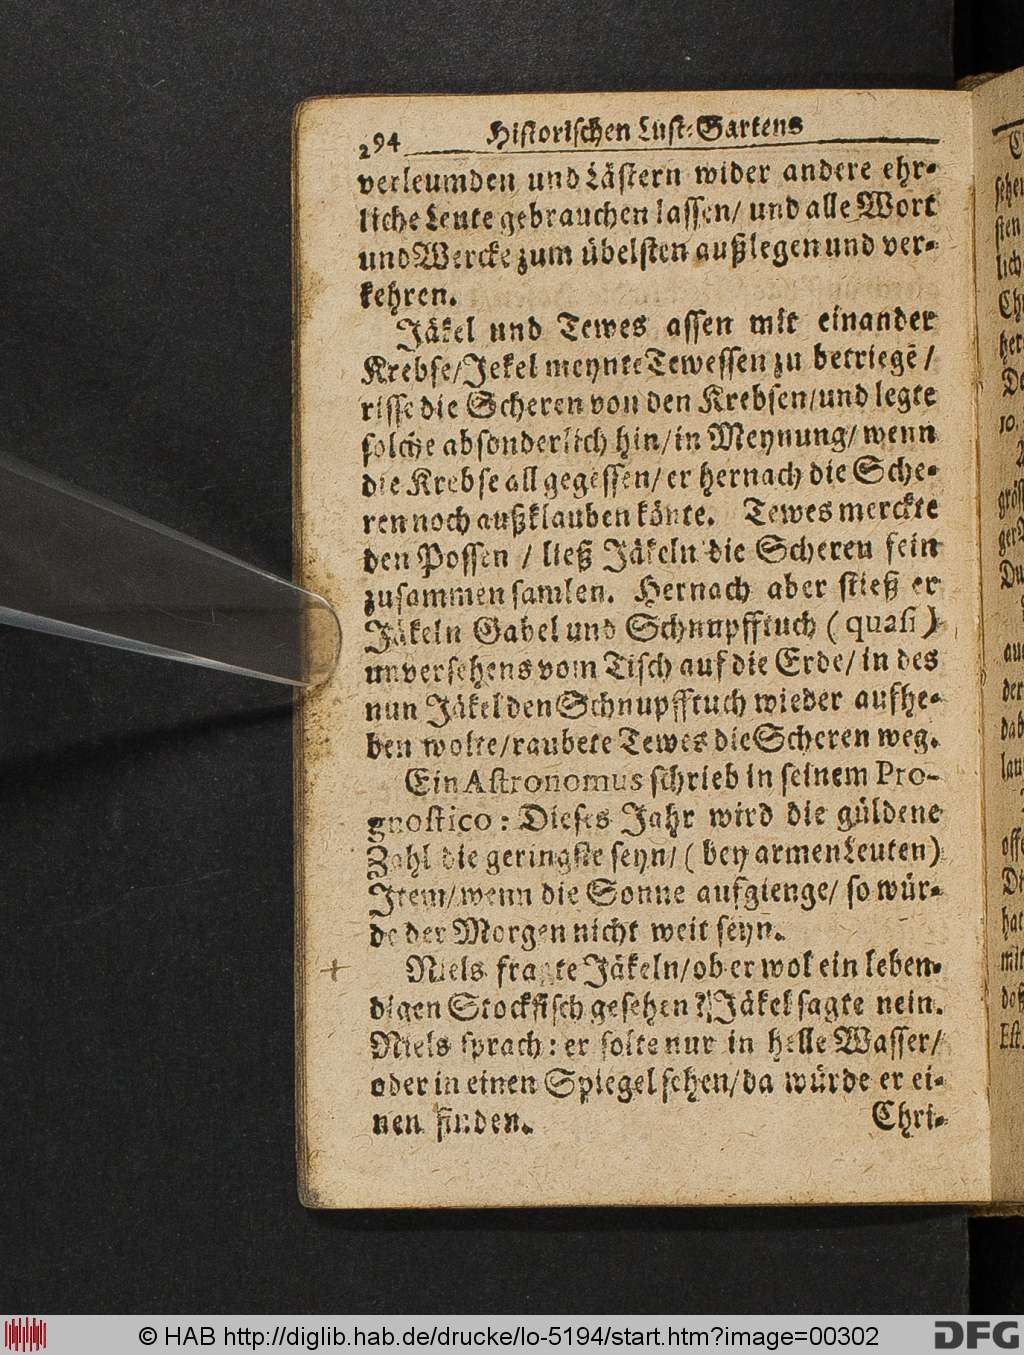 294 Historischen Lust-Gartens
verleumden und Lästern wider andere ehr-
liche Leute gebrauchen lassen/ und alle Wort
und Wercke zum übelsten außlegen und ver-
kehren.
Jäkel und Tewes assen mit einander
Krebse/Jekel meynte Tewessen zu betriegē/
risse die Scheren von den Krebsen/und legte
solche absonderlich hin/in Meynung/wenn
die Krebse all gegessen/er hernach die Sche-
ren noch außklauben könte. Tewes merckte
den Possen / ließ Jäkeln die Scheren fein
zusammen samlen. Hernach aber stieß er
Jäkeln Gabel und Schnupfftuch (quasi)
unversehens vom Tisch auf die Erde/in des
nun Jäkel den Schnupfftuch wieder aufhe-
ben wolte/raubete Tewes die Scheren weg.
Ein Astronomus schrieb in seinem Pro-
gnostico: Dieses Jahr wird die güldene
Zahl die geringste seyn/(bey armen Leuten)
Item/wenn die Sonne aufgienge/ so wür-
de der Morgen nicht weit seyn.
Niels fragte Jäkeln/ob er wol ein leben-
digen Stockfisch gesehen? Jäkel sagte nein.
Niels sprach: er solte nur in helle Wasser/
oder in einen Spiegel sehen/da würde er ei-
nen finden. Chri-
© HAB http://diglib.hab.de/drucke/lo-5194/start.htm?image=00302 DFG